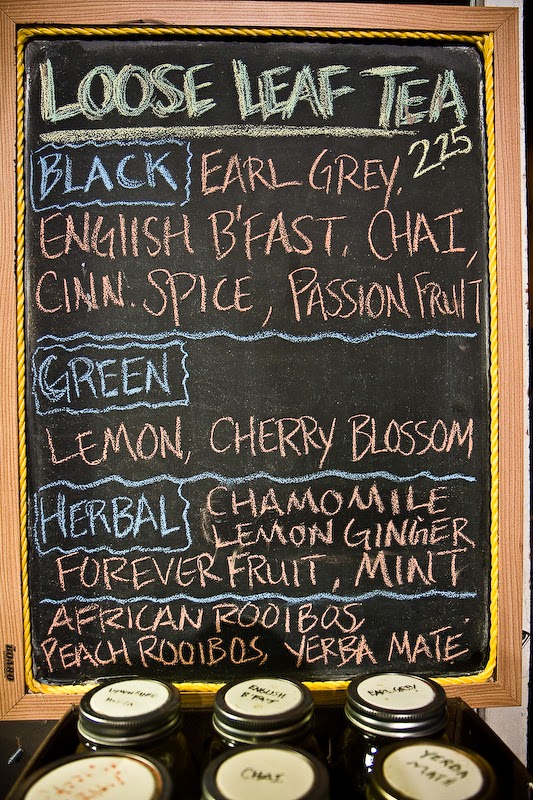 LOOSE LEAF TEA
225
BLACK EARL GREY,
ENGLISH B'FAST, CHAI,
CINN. SPICE, PASSIONFRUIT
GREEN
LEMON, CHERRY BLOSSOM
HERBAL CHAMOMILE
LEMON GINGER
FOREVER FRUIT, MINT
AFRICAN ROOIBOS,
PEACH ROOIBOS, YERBA MATE
BOARD
ENGLISH
B'FAST
EARL GREY
CHAI
YERBA
MATE